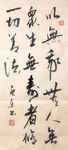 以無我無人無
眾生無壽者修
一切善法